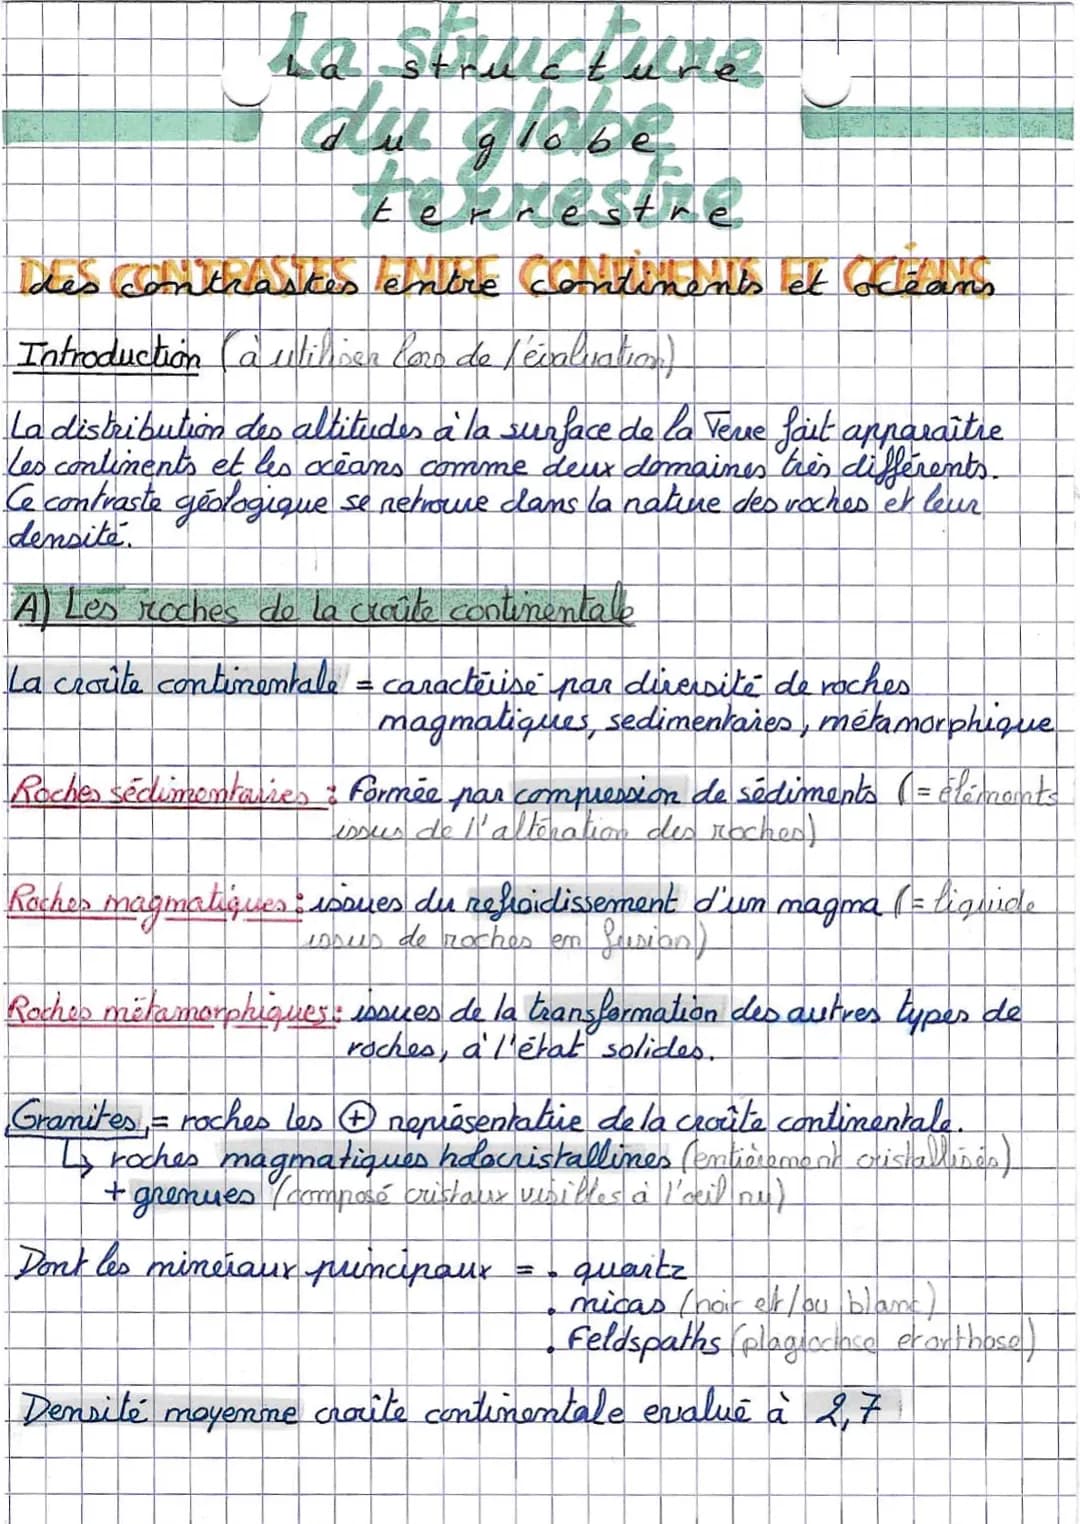 La structure
du globe
terrestre
DES CONTRASTES ENTRE CONTINENTS ET OCÉANS
Introduction (à utiliser lors de l'évaluation)
La distribution des altitudes à la surface de la Terre fait apparaître
les continents et les océans comme deux domaines très différents.
Ce contraste géologique se retrouve dans la nature des roches et leur
densité.
A) Les roches de la croûte continentale
La croûte continentale = caractérisé par diversité de roches
magmatiques, sedimentaires, métamorphique
Roches sédimentaires : formée par compression de sédiments (= éléments
issus de l'altération des roches)
Roches magmatiques : issues du refroidissement d'un magma (= liquide
issus de roches en fusion)
Roches métamorphiques : issues de la transformation des autres types de
roches, à l'état solides.
Granites = roches les + représentative de la croûte continentale.
↳ roches magmatiques holocristallines (entièrement cristallisés)
+ grenues (composé cristaux visibles à l'oeil nu)
Dont les minéraux principaux = • quartz
• micas (noir et/ou blanc)
• Feldspaths (plagioclase et orthose)
Densité moyenne croûte continentale evalué à 2,7